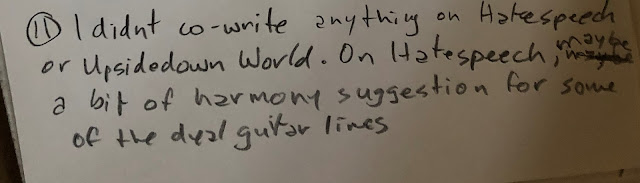 (11) I didnt co-write anything on Hatespeech
or Upsidedown World. On Hatespeech, maybe
a bit of harmony suggestion for some
of the dual guitar lines